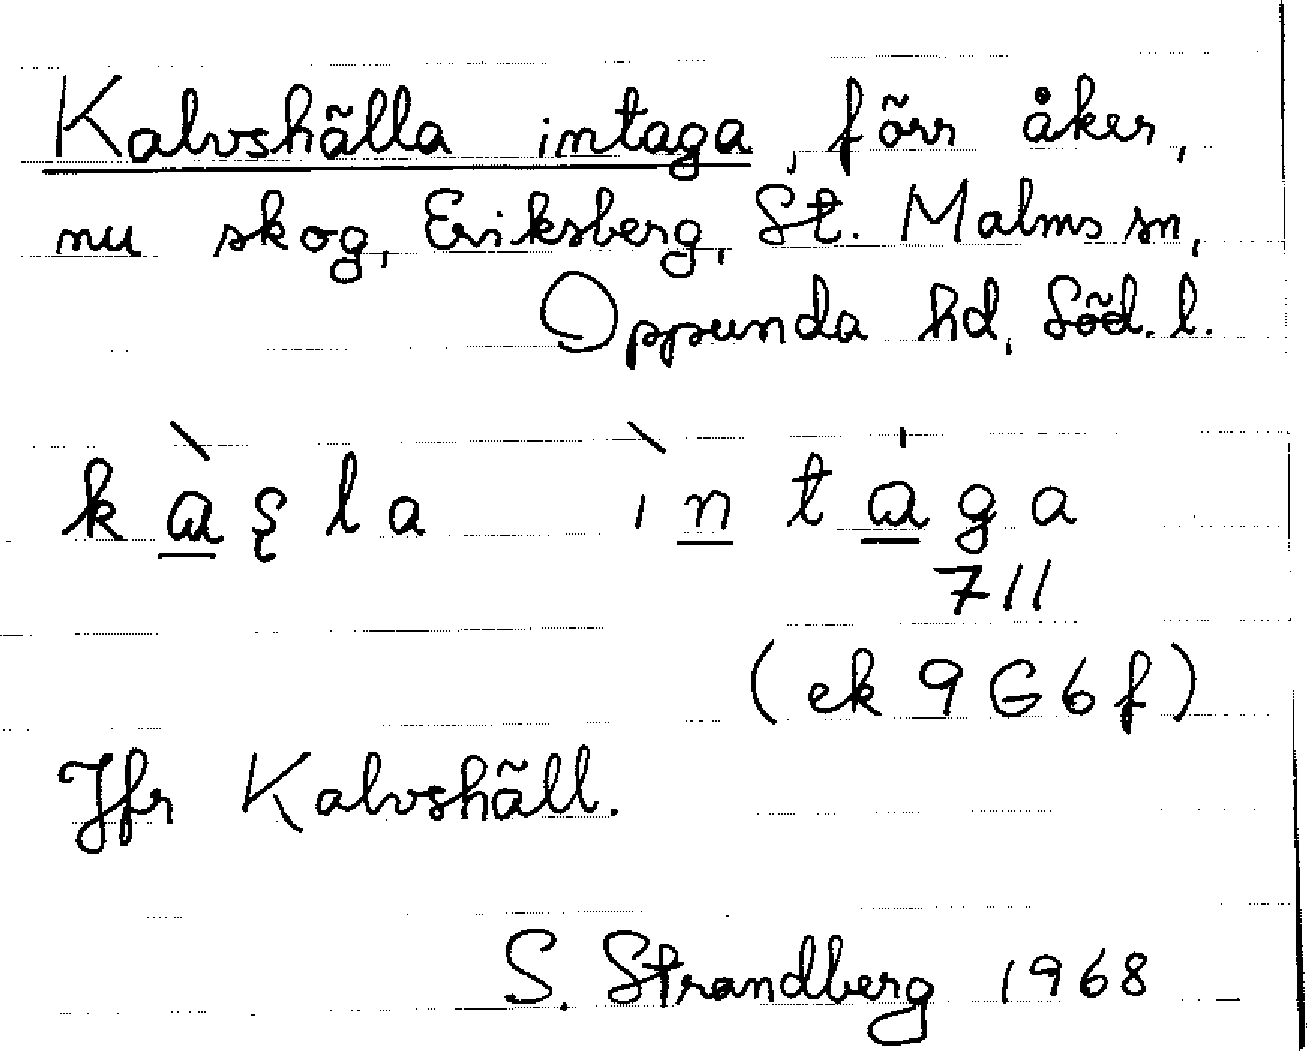 Kalvshälla intaga, förr åker,
nu skog, Eriksberg, St. Malms sn,
Oppunda hd, Söd. l.
kàşla ìntàga
711
(ek 9G6f)
Jfr Kalvshäll.
S. Strandberg 1968